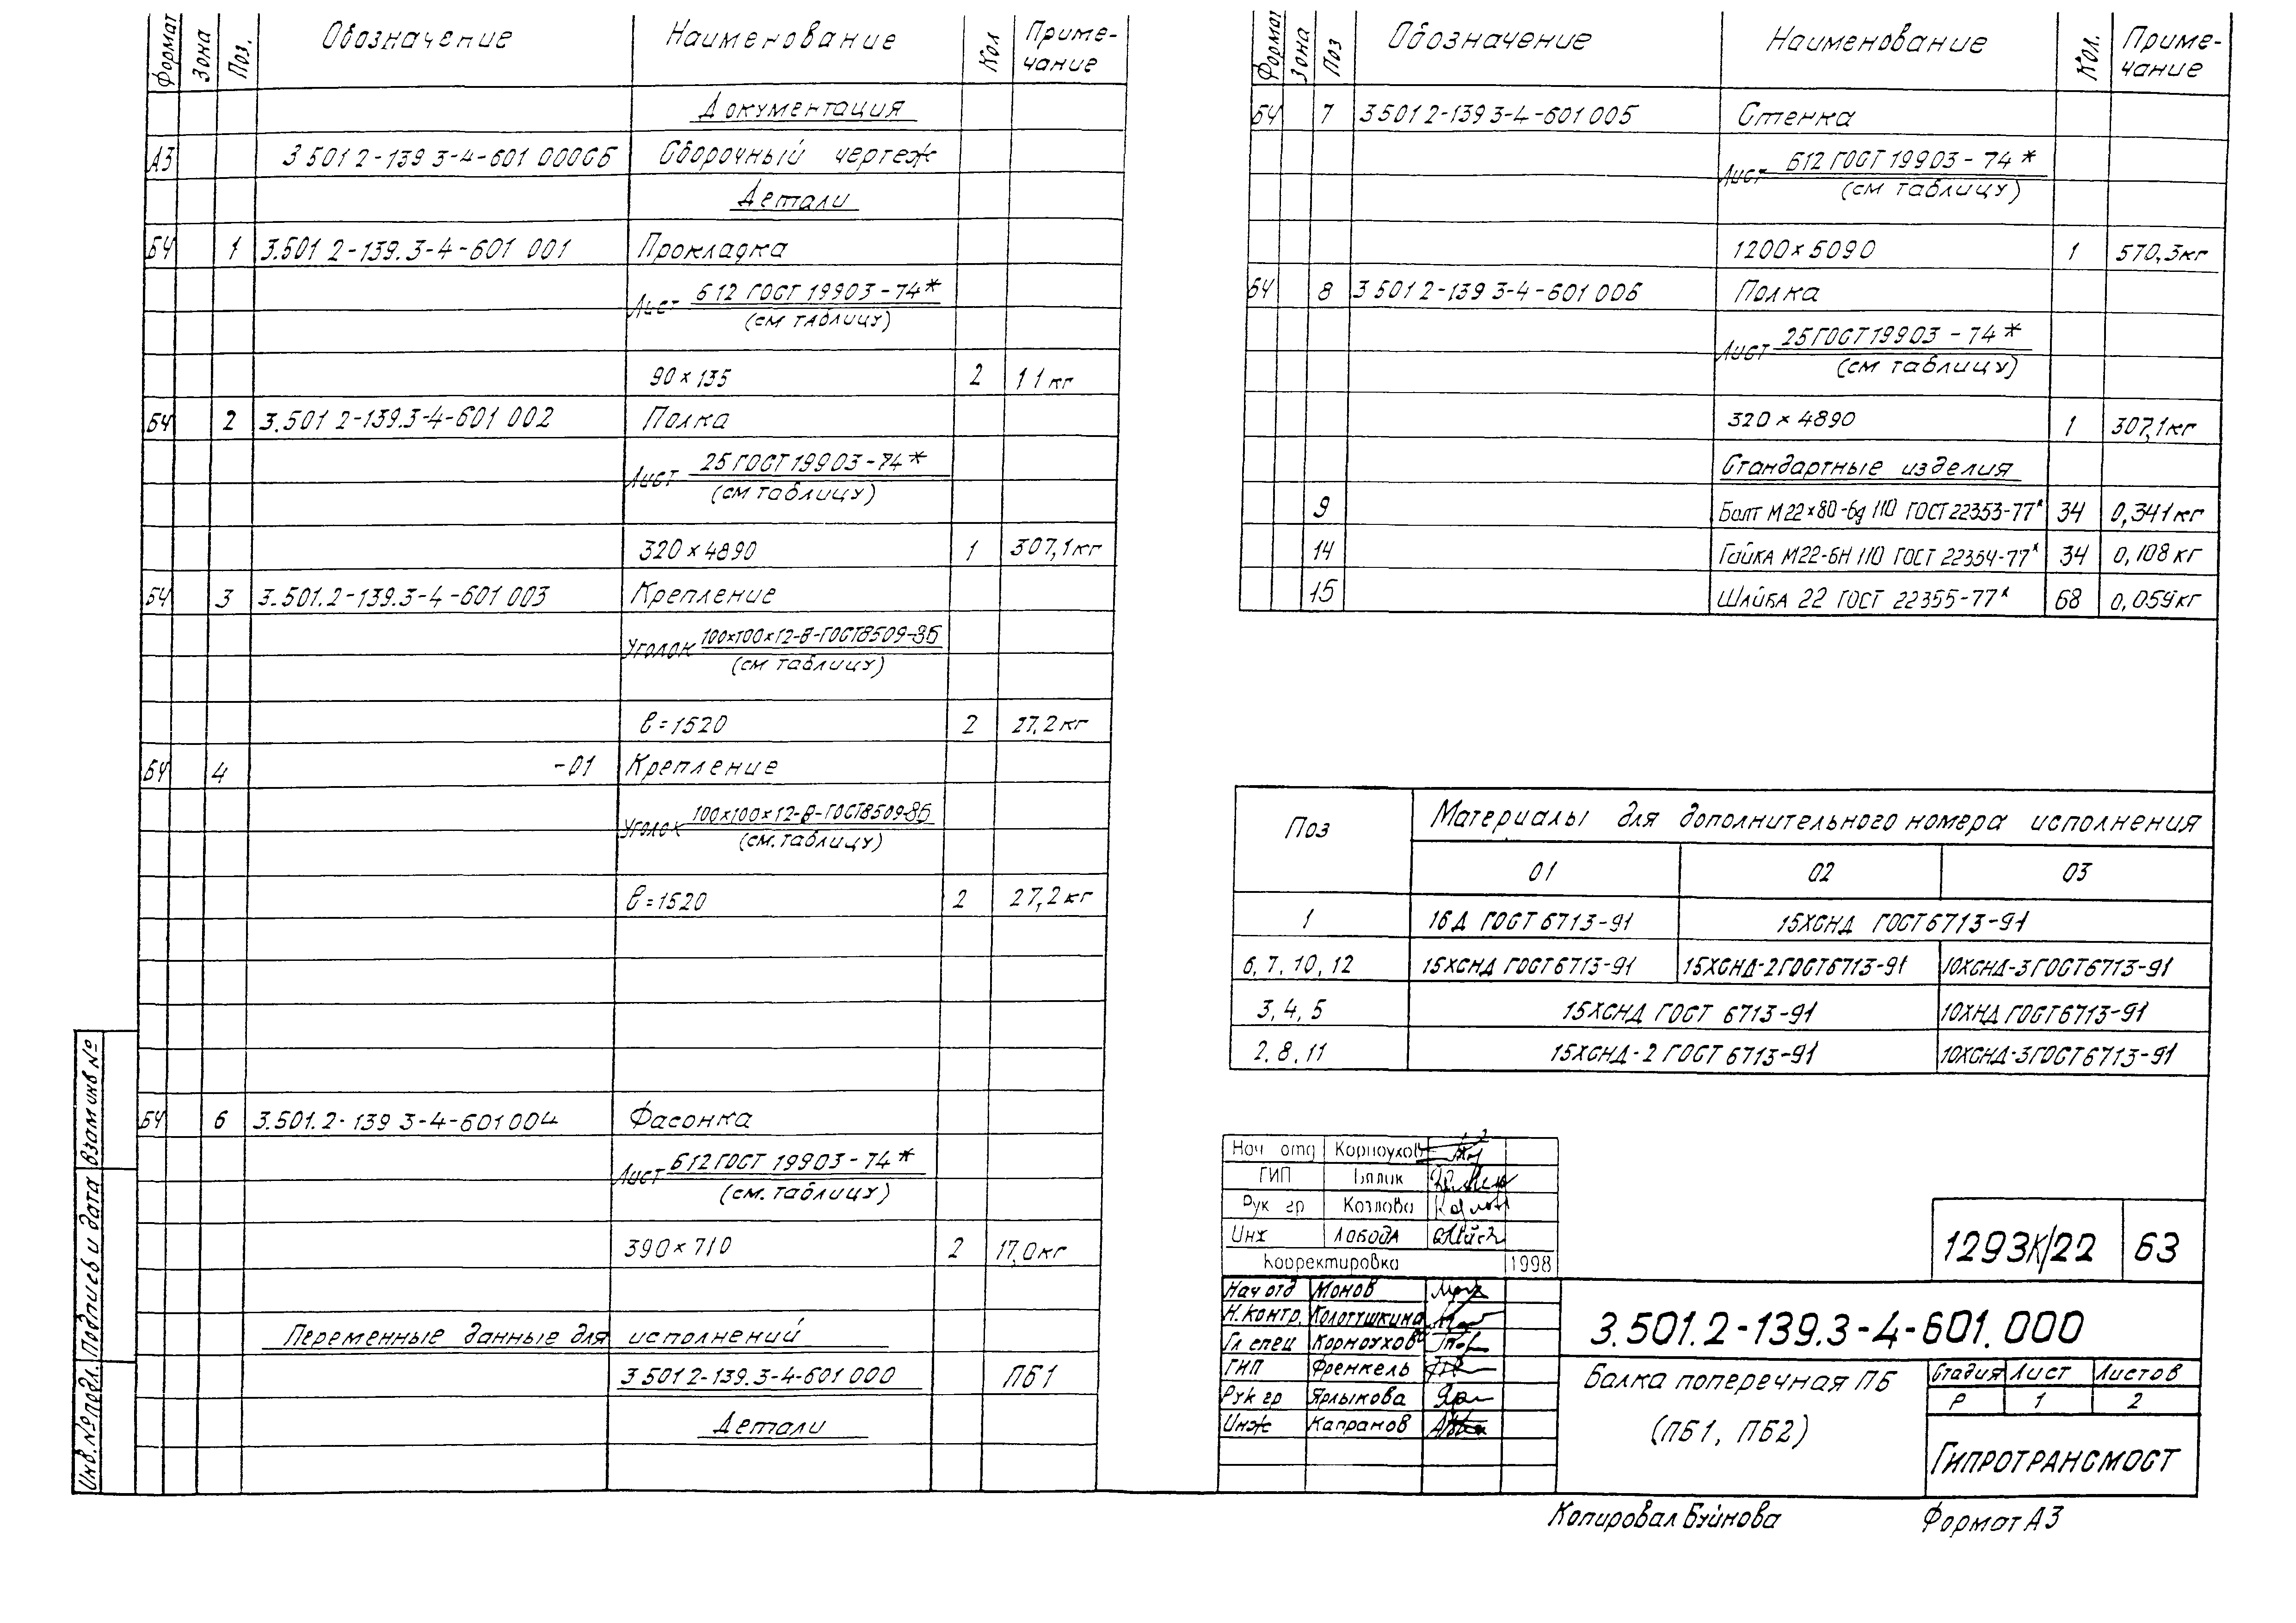 Формат Зона Поз. Обозначение Наименование Кол Приме-чание
Документация
А3 3 501 2-139 3-4-601 000СБ Сборочный чертеж
Детали
БЧ 1 3.501 2-139.3-4-601 001 Прокладка
Лист Б12 ГОСТ 19903-74*
(см таблицу)
90×135 2 1 1 кг
БЧ 2 3.501 2-139.3-4-601 002 Полка
Лист 25 ГОСТ 19903-74*
(см таблицу)
320×4890 1 307,1кг
БЧ 3 3.501.2-139.3-4-601 003 Крепление
Уголок 100×100×12-В-ГОСТ8509-86
(см таблицу)
ℓ=1520 2 27,2кг
БЧ 4 -01 Крепление
Уголок 100×100×12-В-ГОСТ8509-86
(см. таблицу)
ℓ=1520 2 27,2кг
БЧ 6 3.501.2-139 3-4-601 004 Фасонка
Лист Б12 ГОСТ 19903-74*
(см. таблицу)
390×710 2 17,0кг
Переменные данные для исполнений
3 501 2-139.3-4-601 000 ПБ1
Детали
Инв. № подл. Подпись и дата Взам инв №
Формат Зона Поз Обозначение Наименование Кол. Приме-чание
БЧ 7 3 501 2-139 3-4-601 005 Стенка
Лист Б12 ГОСТ 19903-74*
(см таблицу)
1200×5090 1 570,3кг
БЧ 8 3 501 2-139 3-4-601 006 Полка
Лист 25 ГОСТ 19903-74*
(см таблицу)
320×4890 1 307,1кг
Стандартные изделия
9 Болт М22×80-6g 110 ГОСТ 22353-77* 34 0,341кг
14 Гайка М22-6Н 110 ГОСТ 22354-77* 34 0,108кг
15 Шайба 22 ГОСТ 22355-77* 68 0,059кг
Поз Материалы для дополнительного номера исполнения
01 02 03
1 16Д ГОСТ 6713-91 15ХСНД ГОСТ 6713-91
6, 7, 10, 12 15ХСНД ГОСТ 6713-91 15ХСНД-2 ГОСТ 6713-91 10ХСНД-3 ГОСТ 6713-91
3, 4, 5 15ХСНД ГОСТ 6713-91 10ХНД ГОСТ 6713-91
2, 8, 11 15ХСНД-2 ГОСТ 6713-91 10ХСНД-3 ГОСТ 6713-91
Нач отд Корноухов
ГИП Бялик
Рук гр Козлова
Инж Лобода
Корректировка 1998
Нач отд Монов
Н.контр. Колотушкина
Гл спец Корноухов
ГИП Френкель
Рук гр Ярлыкова
Инж Капранов
1293к/22 63
3.501.2-139.3-4-601.000
Балка поперечная ПБ
(ПБ1, ПБ2)
Стадия Лист Листов
Р 1 2
Гипротрансмост
Копировал Буйнова Формат А3